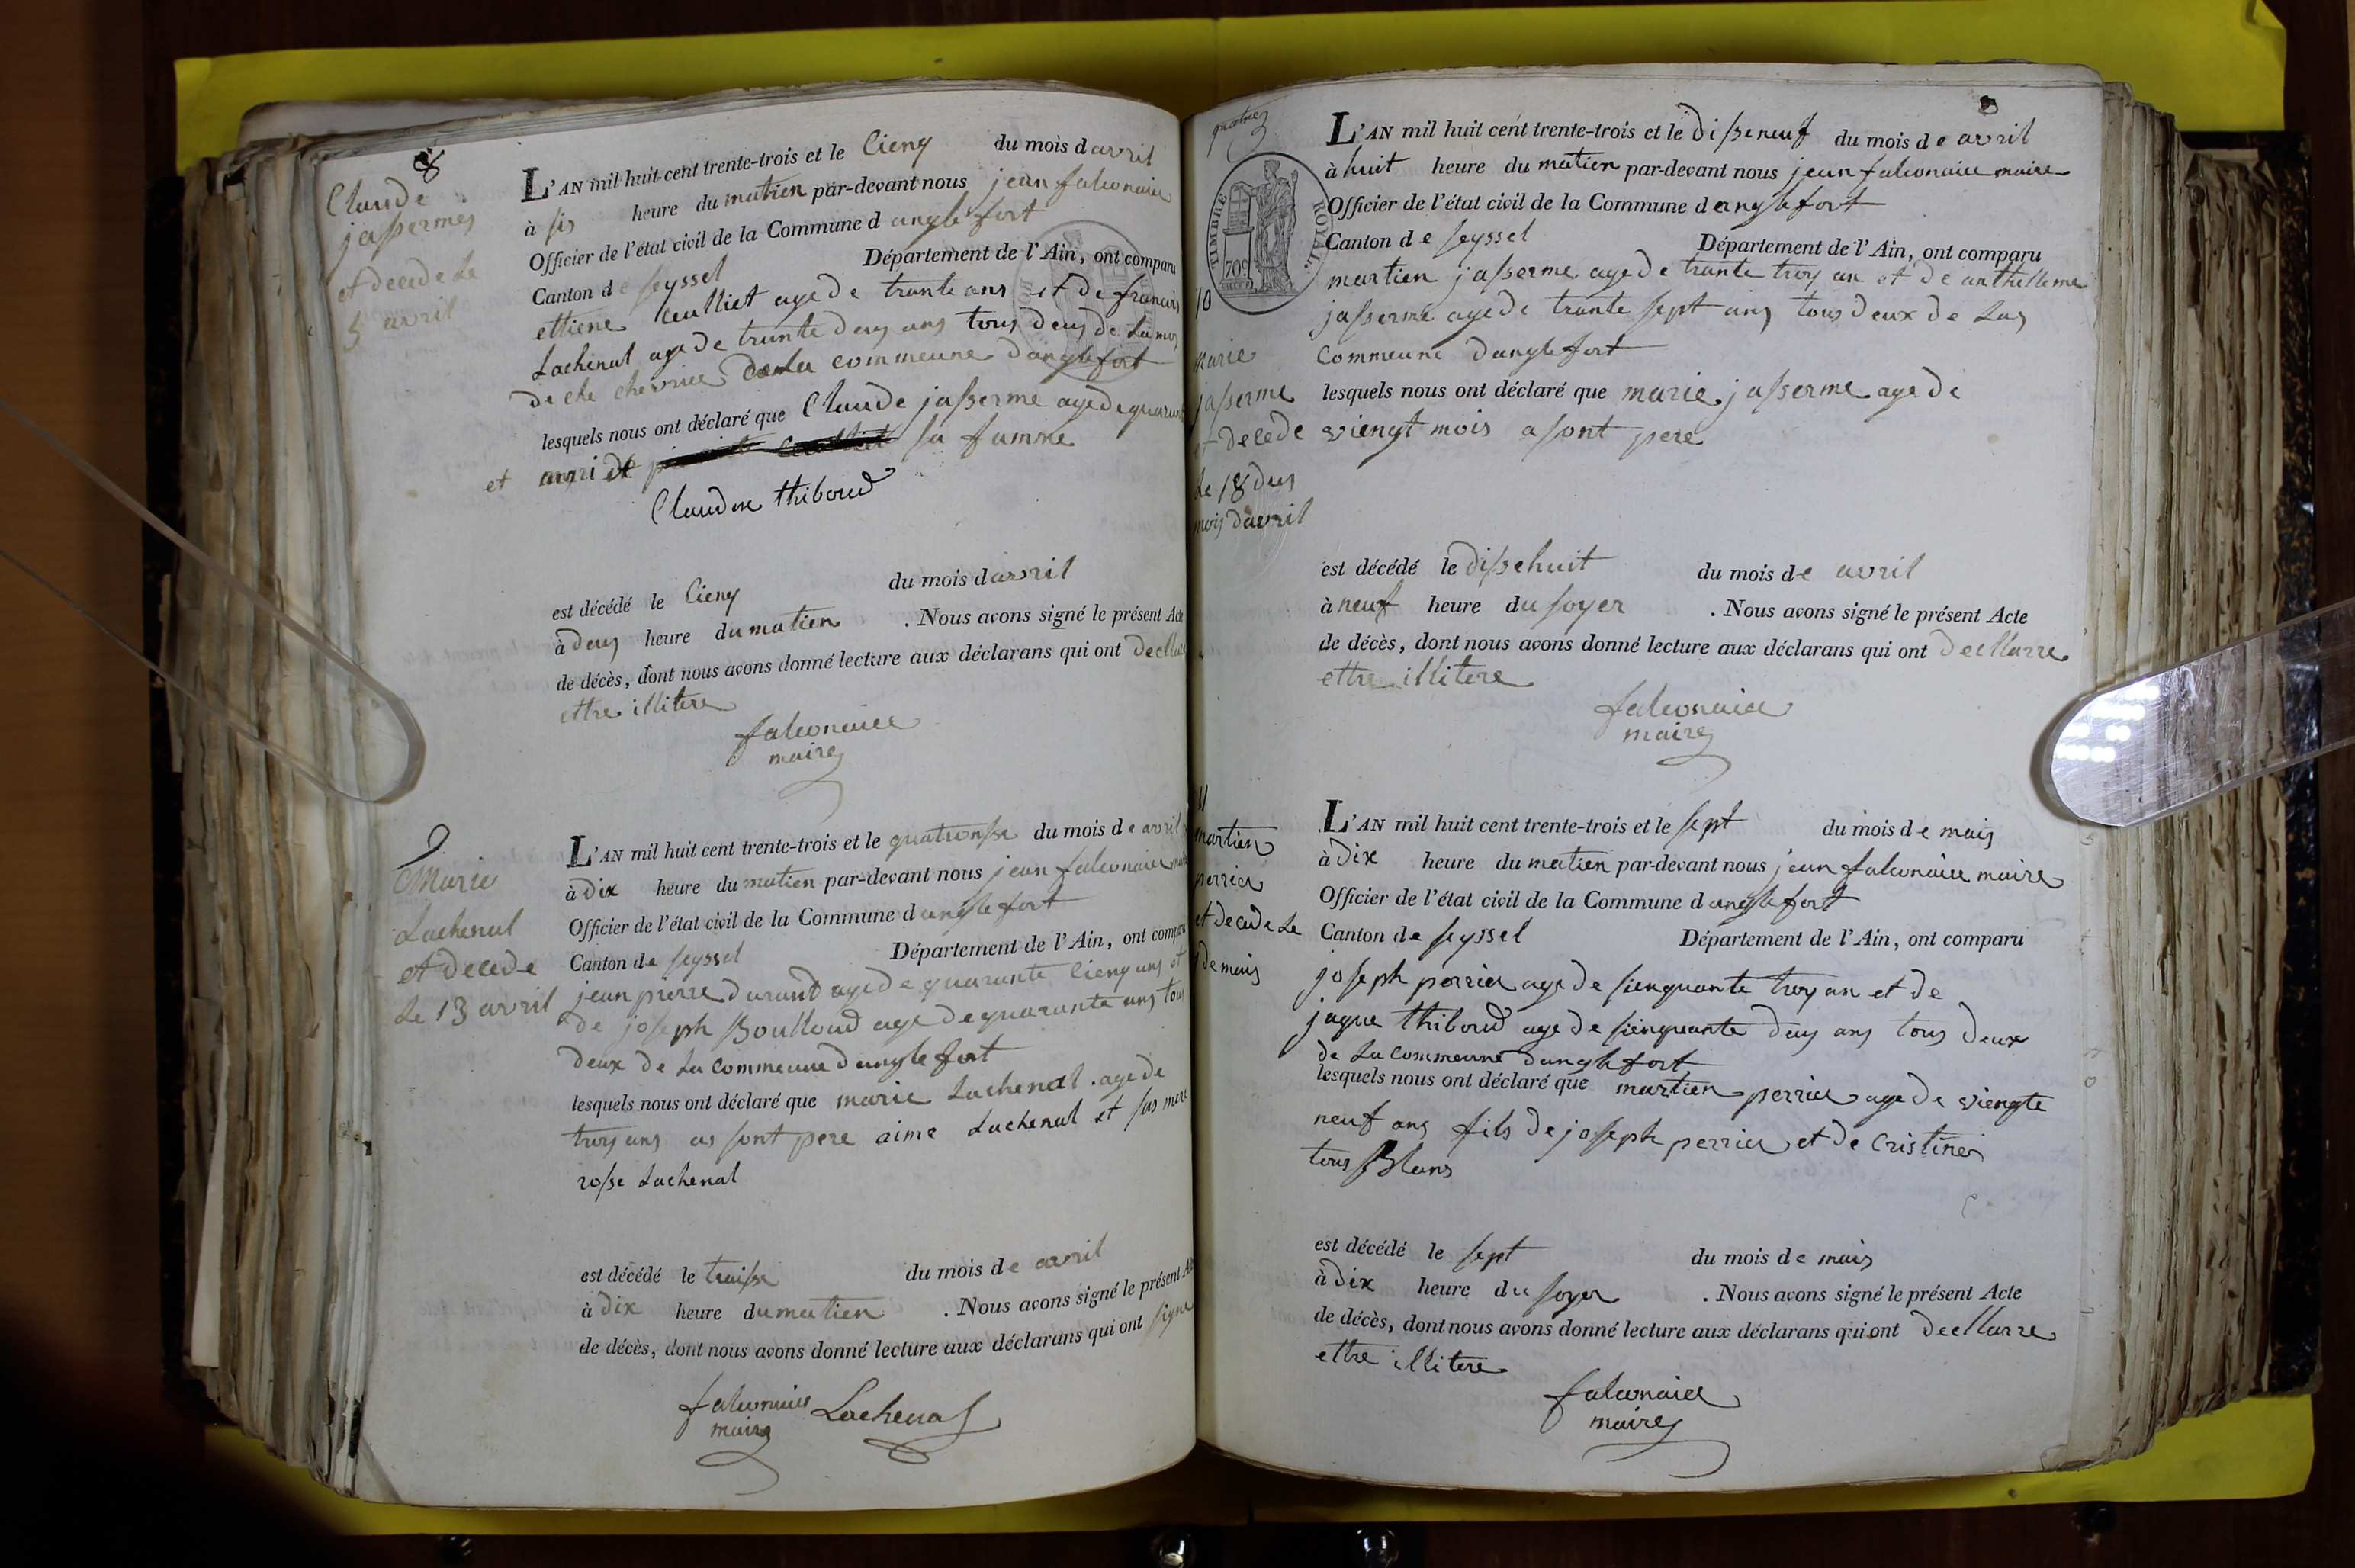 8
Claude
jasserme
et decede Le
5 avril
L'AN mil huit cent trente-trois et le Cienq du mois d avril
à sis heure du matien par-devant nous jean falconnier
Officier de l'état civil de la Commune d anglefort
Canton de seyssel Département de l'Ain, ont comparu
ettiene Cculliet age de trante ans et de francois
Lachenal age de trante deus ans tous deus de
de che chevrier de La commeune d'anglefort
lesquels nous ont déclaré que Claude jasserme age de quarante
et mari de sa famme
Claudine thiboud
est décédé le Cienq du mois d avril
à deus heure du matien . Nous avons signé le présent Acte
de décès, dont nous avons donné lecture aux déclarans qui ont decllare
ettre illitere
falconnier
maire
9
Marie
Lachenal
et decede
Le 13 avril
L'AN mil huit cent trente-trois et le quatorsse du mois de avril
à Dix heure du matien par-devant nous jean falconnier
Officier de l'état civil de la Commune d anglefort
Canton de seyssel Département de l'Ain, ont comparu
jean pierre durand age de quarante Cienq ans et
de joseph Boulloud age de quarante ans tous
deux de La commeune d'anglefort
lesquels nous ont déclaré que marie Lachenal . age de
troy ans as sont pere aime Lachenal et sas mere
rosse Lachenal
est décédé le traisse du mois de avril
à Dix heure du matien . Nous avons signé le présent Acte
de décès, dont nous avons donné lecture aux déclarans qui ont signe
falconnier
maire Lachenal
TIMBRE ROYAL.
70c
L'AN mil huit cent trente-trois et le disseneuf du mois de avril
à huit heure du matien par-devant nous jean falconnier maire
Officier de l'état civil de la Commune d anglefort
Canton de seyssel Département de l'Ain, ont comparu
martien jasserme age de trante troy an et de anthelleme
jasserme age de trante sept ans tous deux de Las
Commeune d'anglefort
lesquels nous ont déclaré que marie jasserme age de
viengt mois a sont pere
10
Marie
jasserme
et decede
Le 18 dus
mois d'avril
est décédé le dissehuit du mois de avril
à neuf heure du soyer . Nous avons signé le présent Acte
de décès, dont nous avons donné lecture aux déclarans qui ont decllarre
ettre illitere
falconnier
maire
11
martien
perrier
et decede Le
7 de mais
L'AN mil huit cent trente-trois et le sept du mois de mais
à Dix heure du matien par-devant nous jean falconnier maire
Officier de l'état civil de la Commune d anglefort
Canton de seyssel Département de l'Ain, ont comparu
joseph perrier age de sienquante troy an et de
jaque thiboud age de sienquante deus ans tous deux
de La commeune d'anglefort
lesquels nous ont déclaré que martien perrier age de viengte
neuf ans fils de joseph perrier et de Cristine
tous Blans
est décédé le sept du mois de mais
à Dix heure du soyer . Nous avons signé le présent Acte
de décès, dont nous avons donné lecture aux déclarans qui ont decllarre
ettre illitere
falconnier
maire